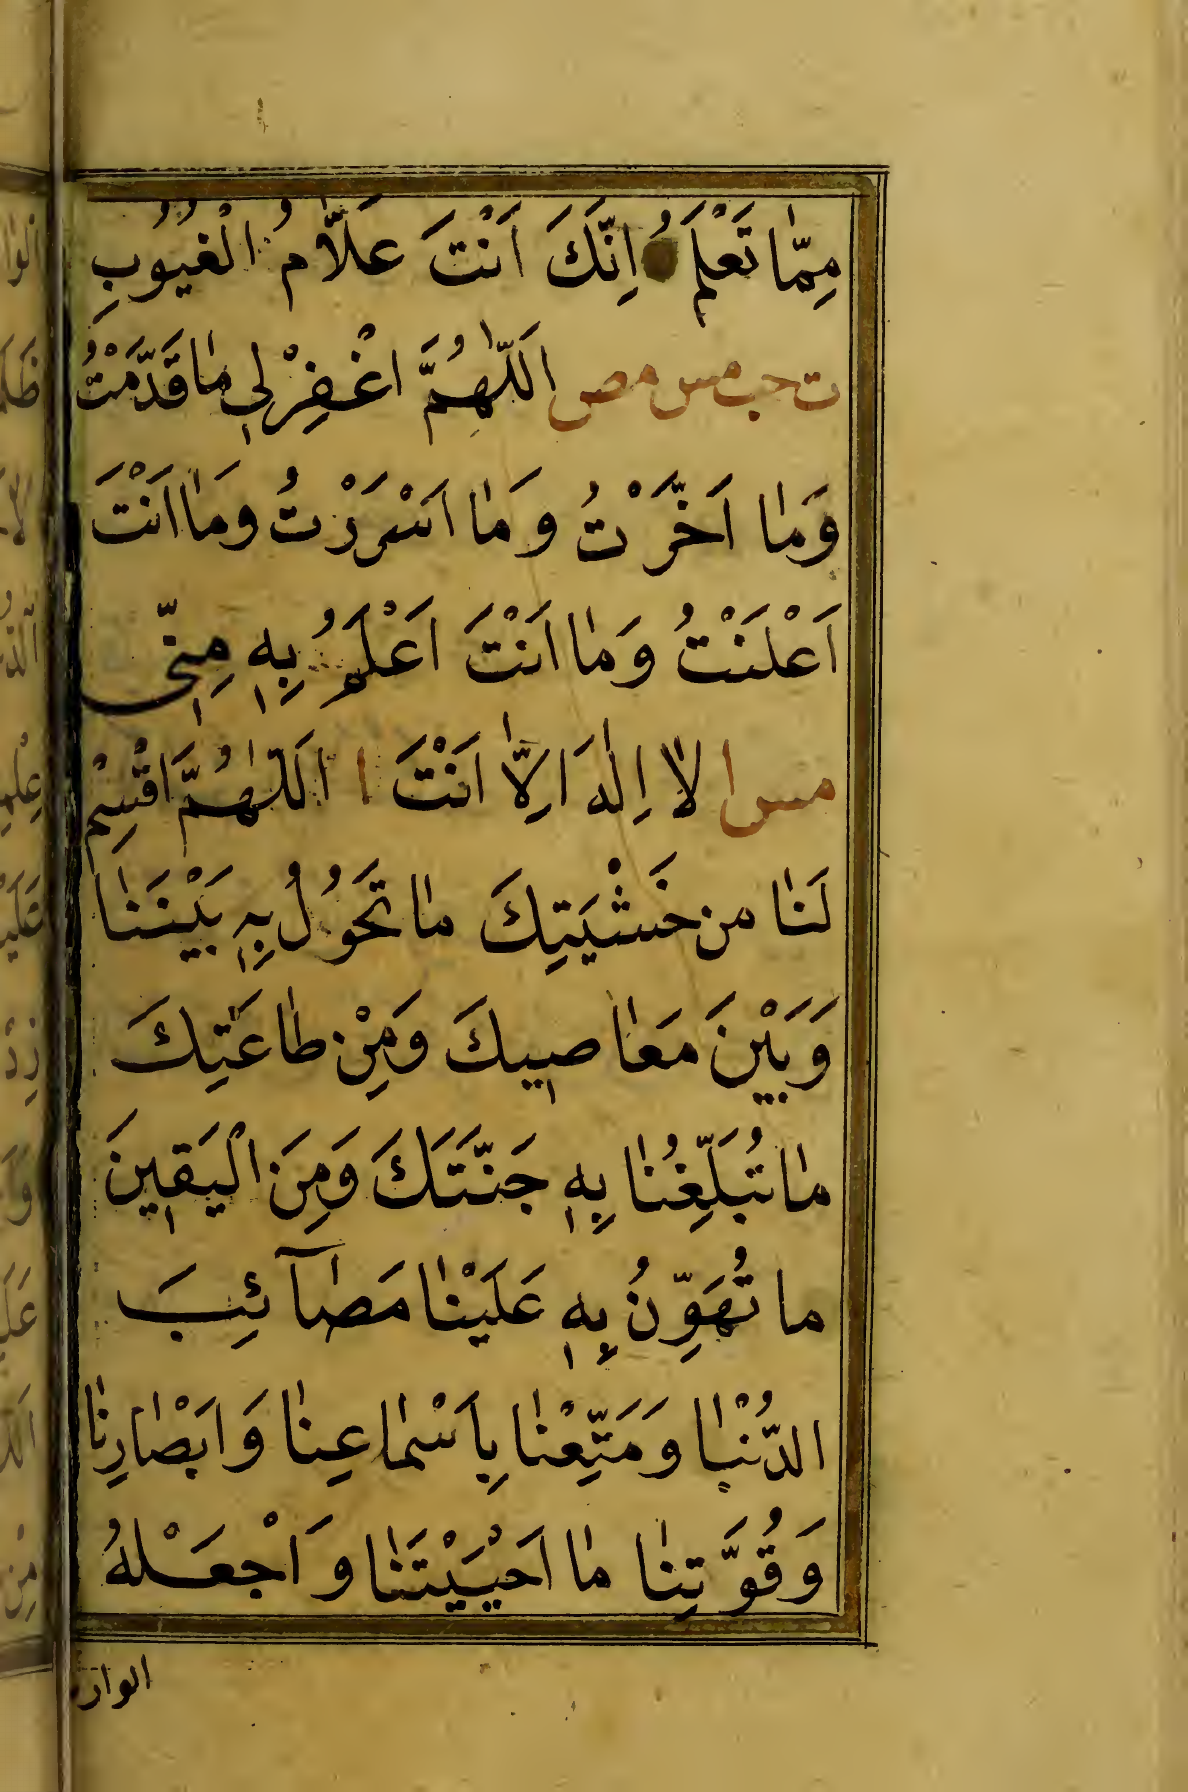 مِمَّا تَعْلَمُ اِنَّكَ اَنْتَ عَلَّامُ الْغُيُوبِ
ت حب مس مص اَللّٰهُمَّ اغْفِرْ لِي مَا قَدَّمْتُ
وَمَا اَخَّرْتُ وَمَا اَسْرَرْتُ وَمَا اَنْتَ
اَعْلَنْتُ وَمَا اَنْتَ اَعْلَمُ بِهِ مِنِّي
مس ا لَا اِلٰهَ اِلَّا اَنْتَ ا اَللّٰهُمَّ اقْسِمْ
لَنَا من خَشْيَتِكَ مَا تَحَوُلُ بِهِ بَيْنَنَا
وَبَيْنَ مَعَاصِيكَ وَمِنْ طَاعَتِكَ
مَا تُبَلِّغُنَا بِهِ جَنَّتَكَ وَمِنَ الْيَقِينَ
ما تُهَوِّنُ بِهِ عَلَيْنَا مَصَآئِبَ
الدُّنْيَا وَمَتِّعْنَا بِاَسْمَاعِنَا وَاَبْصَارِنَا
وَقُوَّتِنَا مَا اَحْيَيْتَنَا وَاَجْعَلْهُ